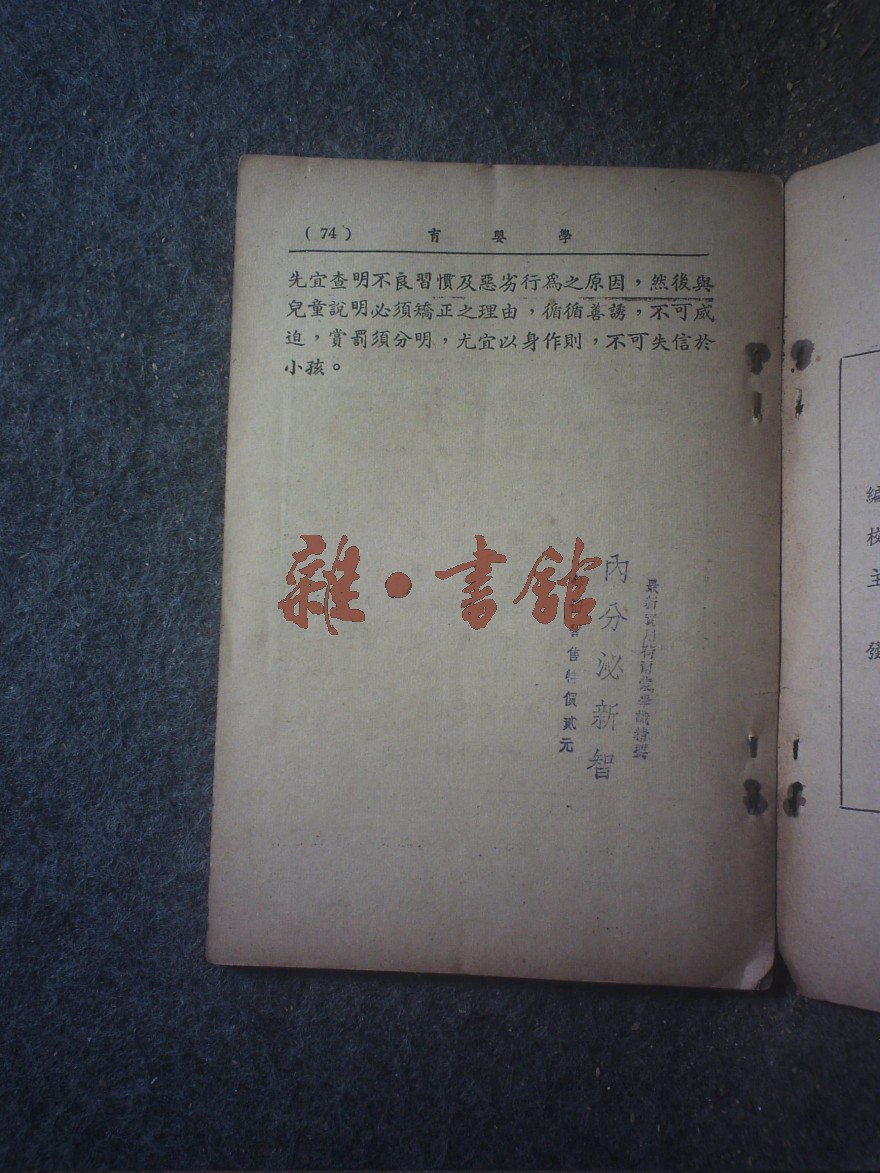 (74) 育 嬰 學
先宜查明不良習慣及惡劣行爲之原因，然後與
兒童說明必須矯正之理由，循循善誘，不可威
迫，賞罰須分明，尤宜以身作則，不可失信於
小孩。
雜·書館
最新實用荷爾蒙學
內分泌新智
售特價貳元
編
校
主
發